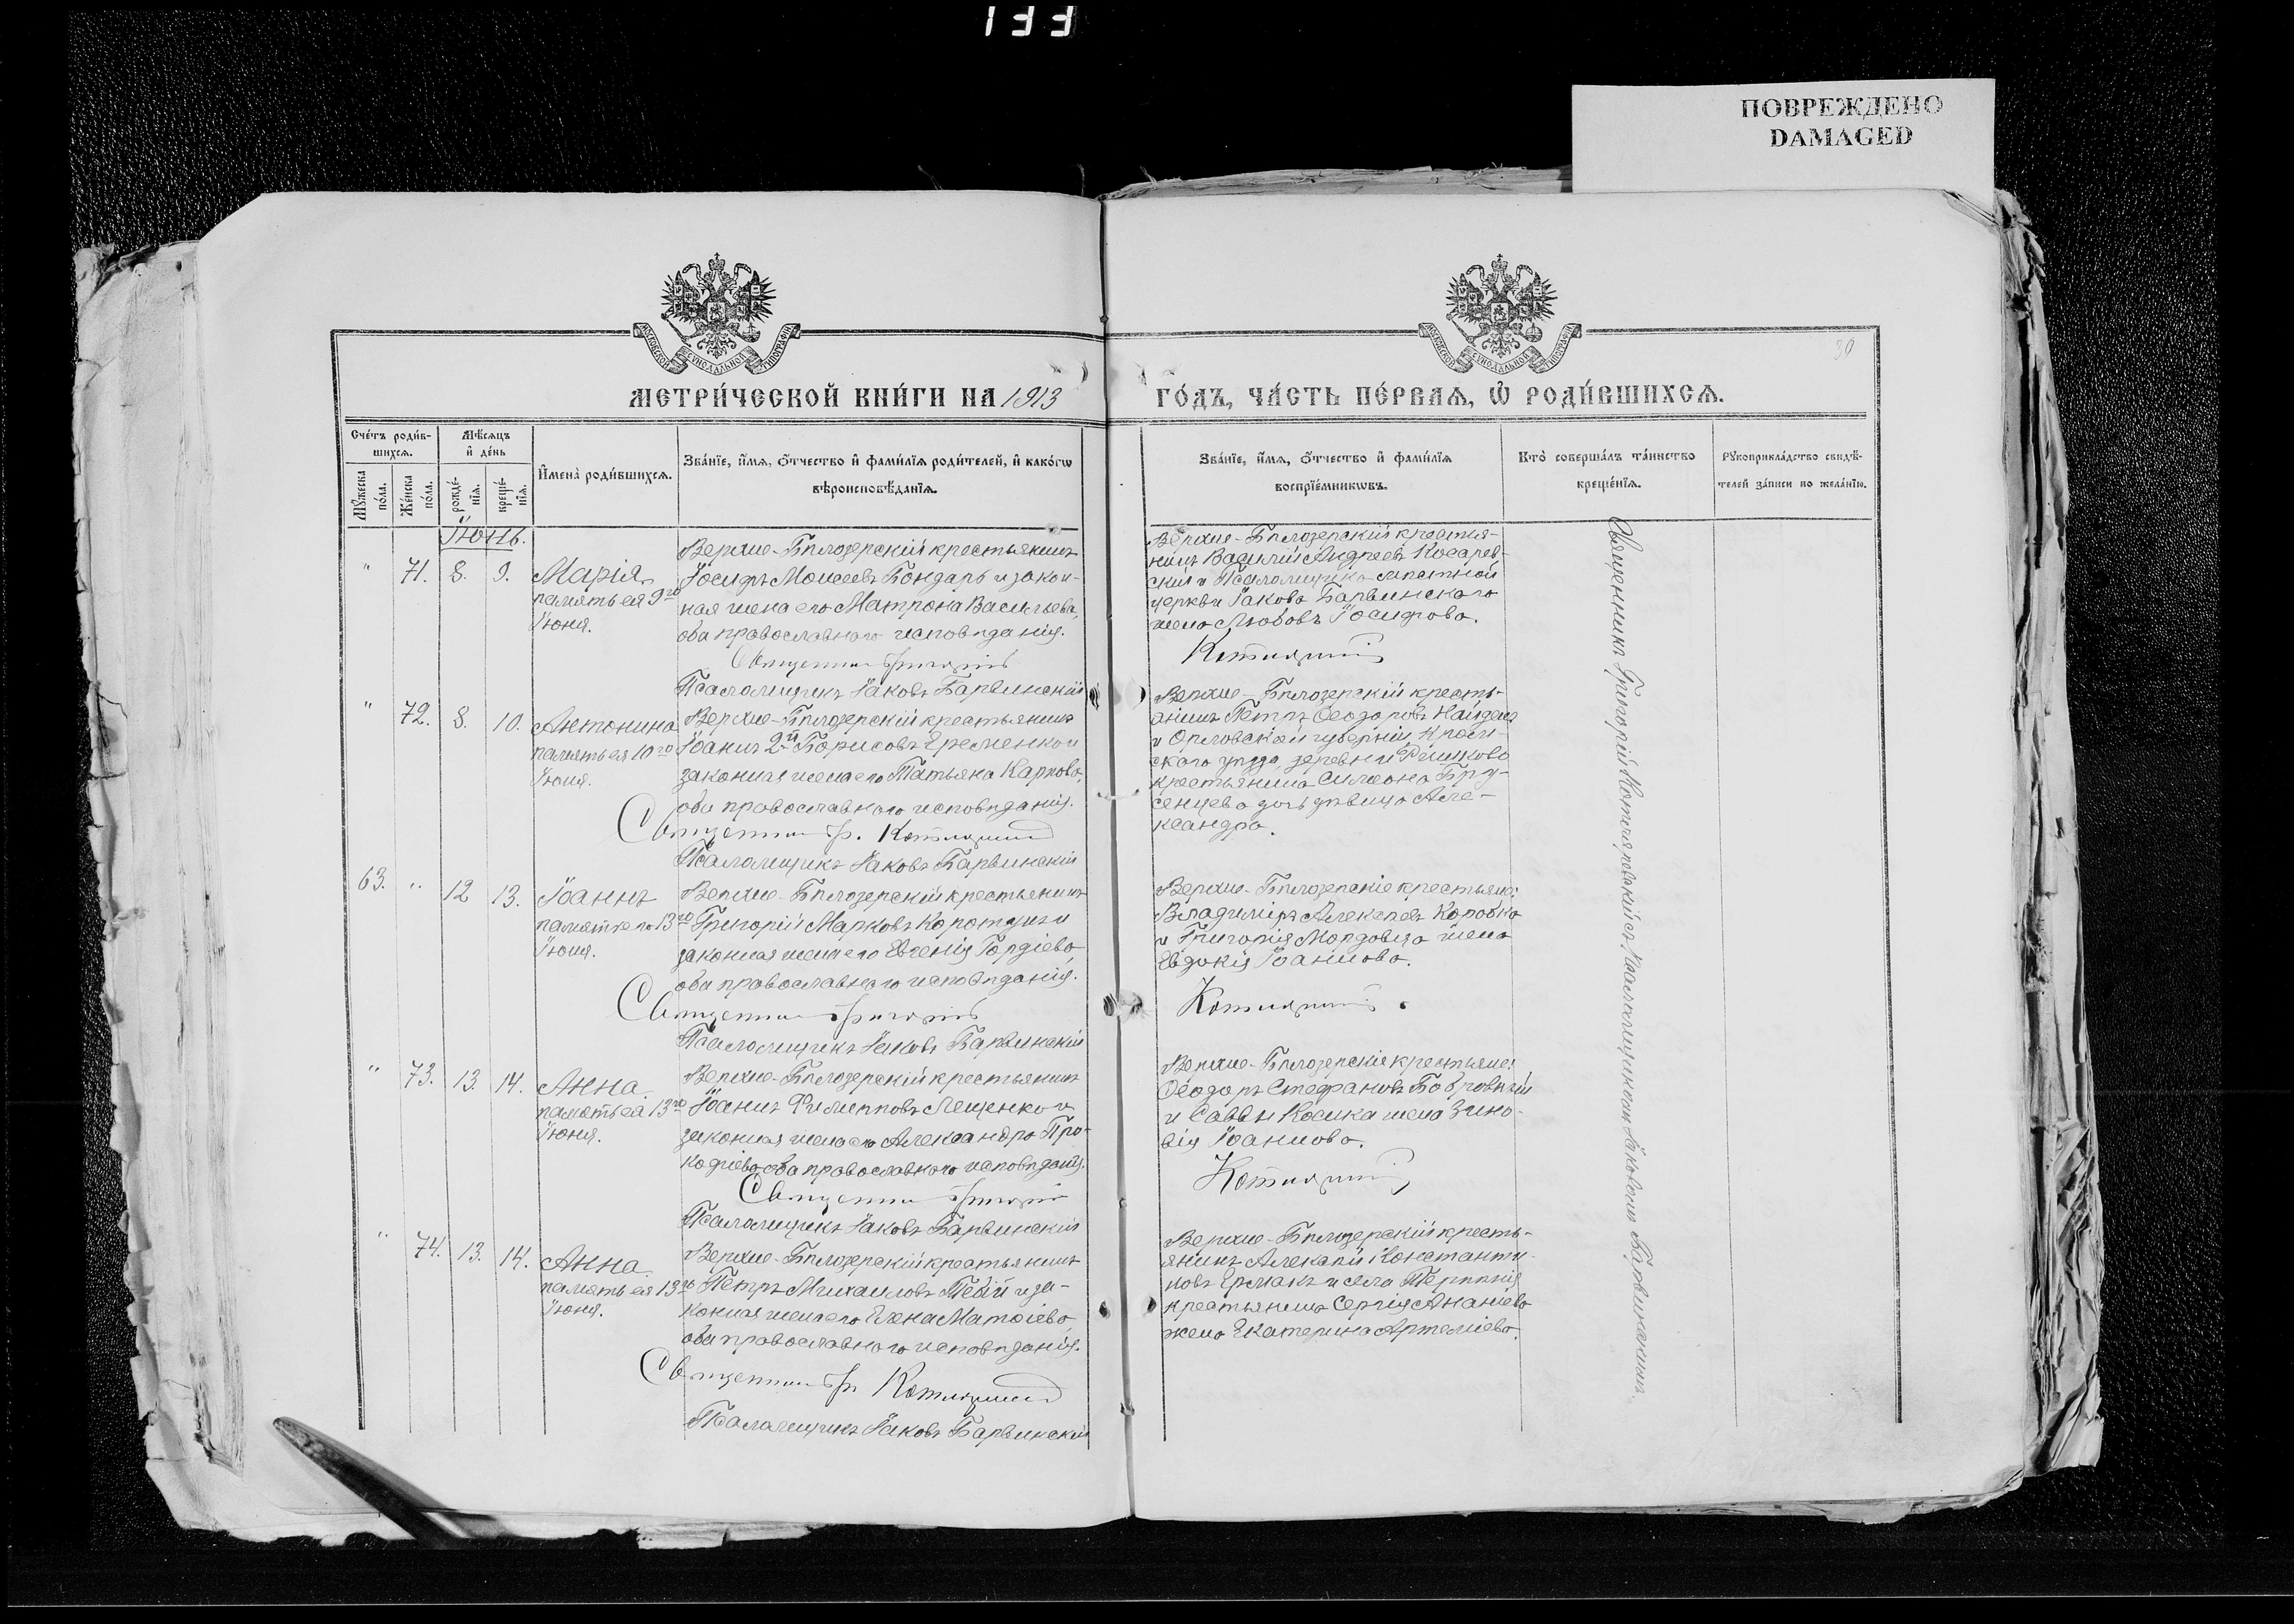 133
ПОВРЕЖДЕНО
DAMAGED
МОСКОВСКОЙ СУНОДАЛЬНОЙ ТИПОГРАФІИ
МОСКОВСКОЙ СУНОДАЛЬНОЙ ТИПОГРАФІИ
30
МЕТРИ́ЧЕСКОЙ КНИ́ГИ НА 1913
ГО́ДЪ, ЧА́СТЬ ПЕ́РВАѦ, Ѡ҆ РОДИ́ВШИХСѦ.
Сче́тъ роди́в-
шихсѧ.
Мѣ́сѧцъ
и҆ де́нь
Мꙋ́жеска по́ла.
Же́нска по́ла.
рожде́-нїѧ.
креще́-нїѧ.
И҆мена̀ роди́вшихсѧ.
Зва́нїе, и҆́мѧ, ѻ҆́тчество и҆ фами́лїѧ роди́телей, и҆ како́гѡ
вѣроисповѣ́данїѧ.
Зва́нїе, и҆́мѧ, ѻ҆́тчество и҆ фами́лїѧ
воспрїе́мникѡвъ.
Кто̀ соверша́лъ та́инство
креще́нїѧ.
Рꙋкоприкла́дство свидѣ́-
телей за́писи по жела́нїю.
Іюнь.
" 71. 8. 9. Марія
память ея 9го
Іюня.
Верхне-Бѣлозерскій крестьянинъ
Іосифъ Моисеевъ Бондарь и закон-
ная жена его Матрона Васильева,
оба православнаго исповѣданія.
Священникъ Григорій
Псаломщикъ Іаковъ Барвинскій
Верхне-Бѣлозерскій крестья-
нинъ Василій Андреевъ Косарев-
скій и Псаломщика мѣстной
церкви Іакова Барвинскаго
жена Любовь Іосифова.
" 72. 8. 10. Антонина
память ея 10го
Іюня.
Верхне-Бѣлозерскій крестьянинъ
Іоаннъ 2й Борисовъ Еременко и
законная жена его Татьяна Карпова,
оба православнаго исповѣданія.
Священникъ Гр.
Псаломщикъ Іаковъ Барвинскій
Верхне-Бѣлозерскій кресть-
янинъ Петръ Ѳеодоровъ Найденъ
и Орловской губерніи,
скаго уѣзда, деревни
крестьянина Симеона Бру-
сенцева дочь дѣвица Але-
ксандра.
63. " 12 13. Іоаннъ
память его 13го
Іюня.
Верхне-Бѣлозерскій крестьянинъ
Григорій Марковъ и
законная жена его Евгенія Гордіева,
оба православнаго исповѣданія.
Священникъ Григорій
Псаломщикъ Іаковъ Барвинскій
Верхне-Бѣлозерскіе крестьяне:
Владиміръ Алексѣевъ Коробка
и Григорія Мордовца жена
Евдокія Іоаннова.
" 73. 13. 14. Анна
память ея 13го
Іюня.
Верхне-Бѣлозерскій крестьянинъ
Іоаннъ Филипповъ Лещенко и
законная жена его Александра Про-
кофіева оба православнаго исповѣданія.
Священникъ Григорій
Псаломщикъ Іаковъ Барвинскій
Верхне-Бѣлозерскіе крестьяне:
Ѳеодоръ Стефановъ Бобровный
и Саввы Косика жена Зино-
вія Іоаннова.
" 74. 13. 14. Анна
память ея 13го
Іюня.
Верхне-Бѣлозерскій крестьянинъ
Петръ Михаиловъ и за-
конная жена его Елена Матѳіева,
оба православнаго исповѣданія.
Священникъ Гр.
Псаломщикъ Іаковъ Барвинскій
Верхне-Бѣлозерскій кресть-
янинъ Алексѣй Константи-
новъ Ермакъ и села Терпѣнія
крестьянина Сергія Ананіева
жена Екатерина Артеміева.
Священникъ Григорій Котляревскій съ Псаломщикомъ Іаковомъ Барвинскимъ.